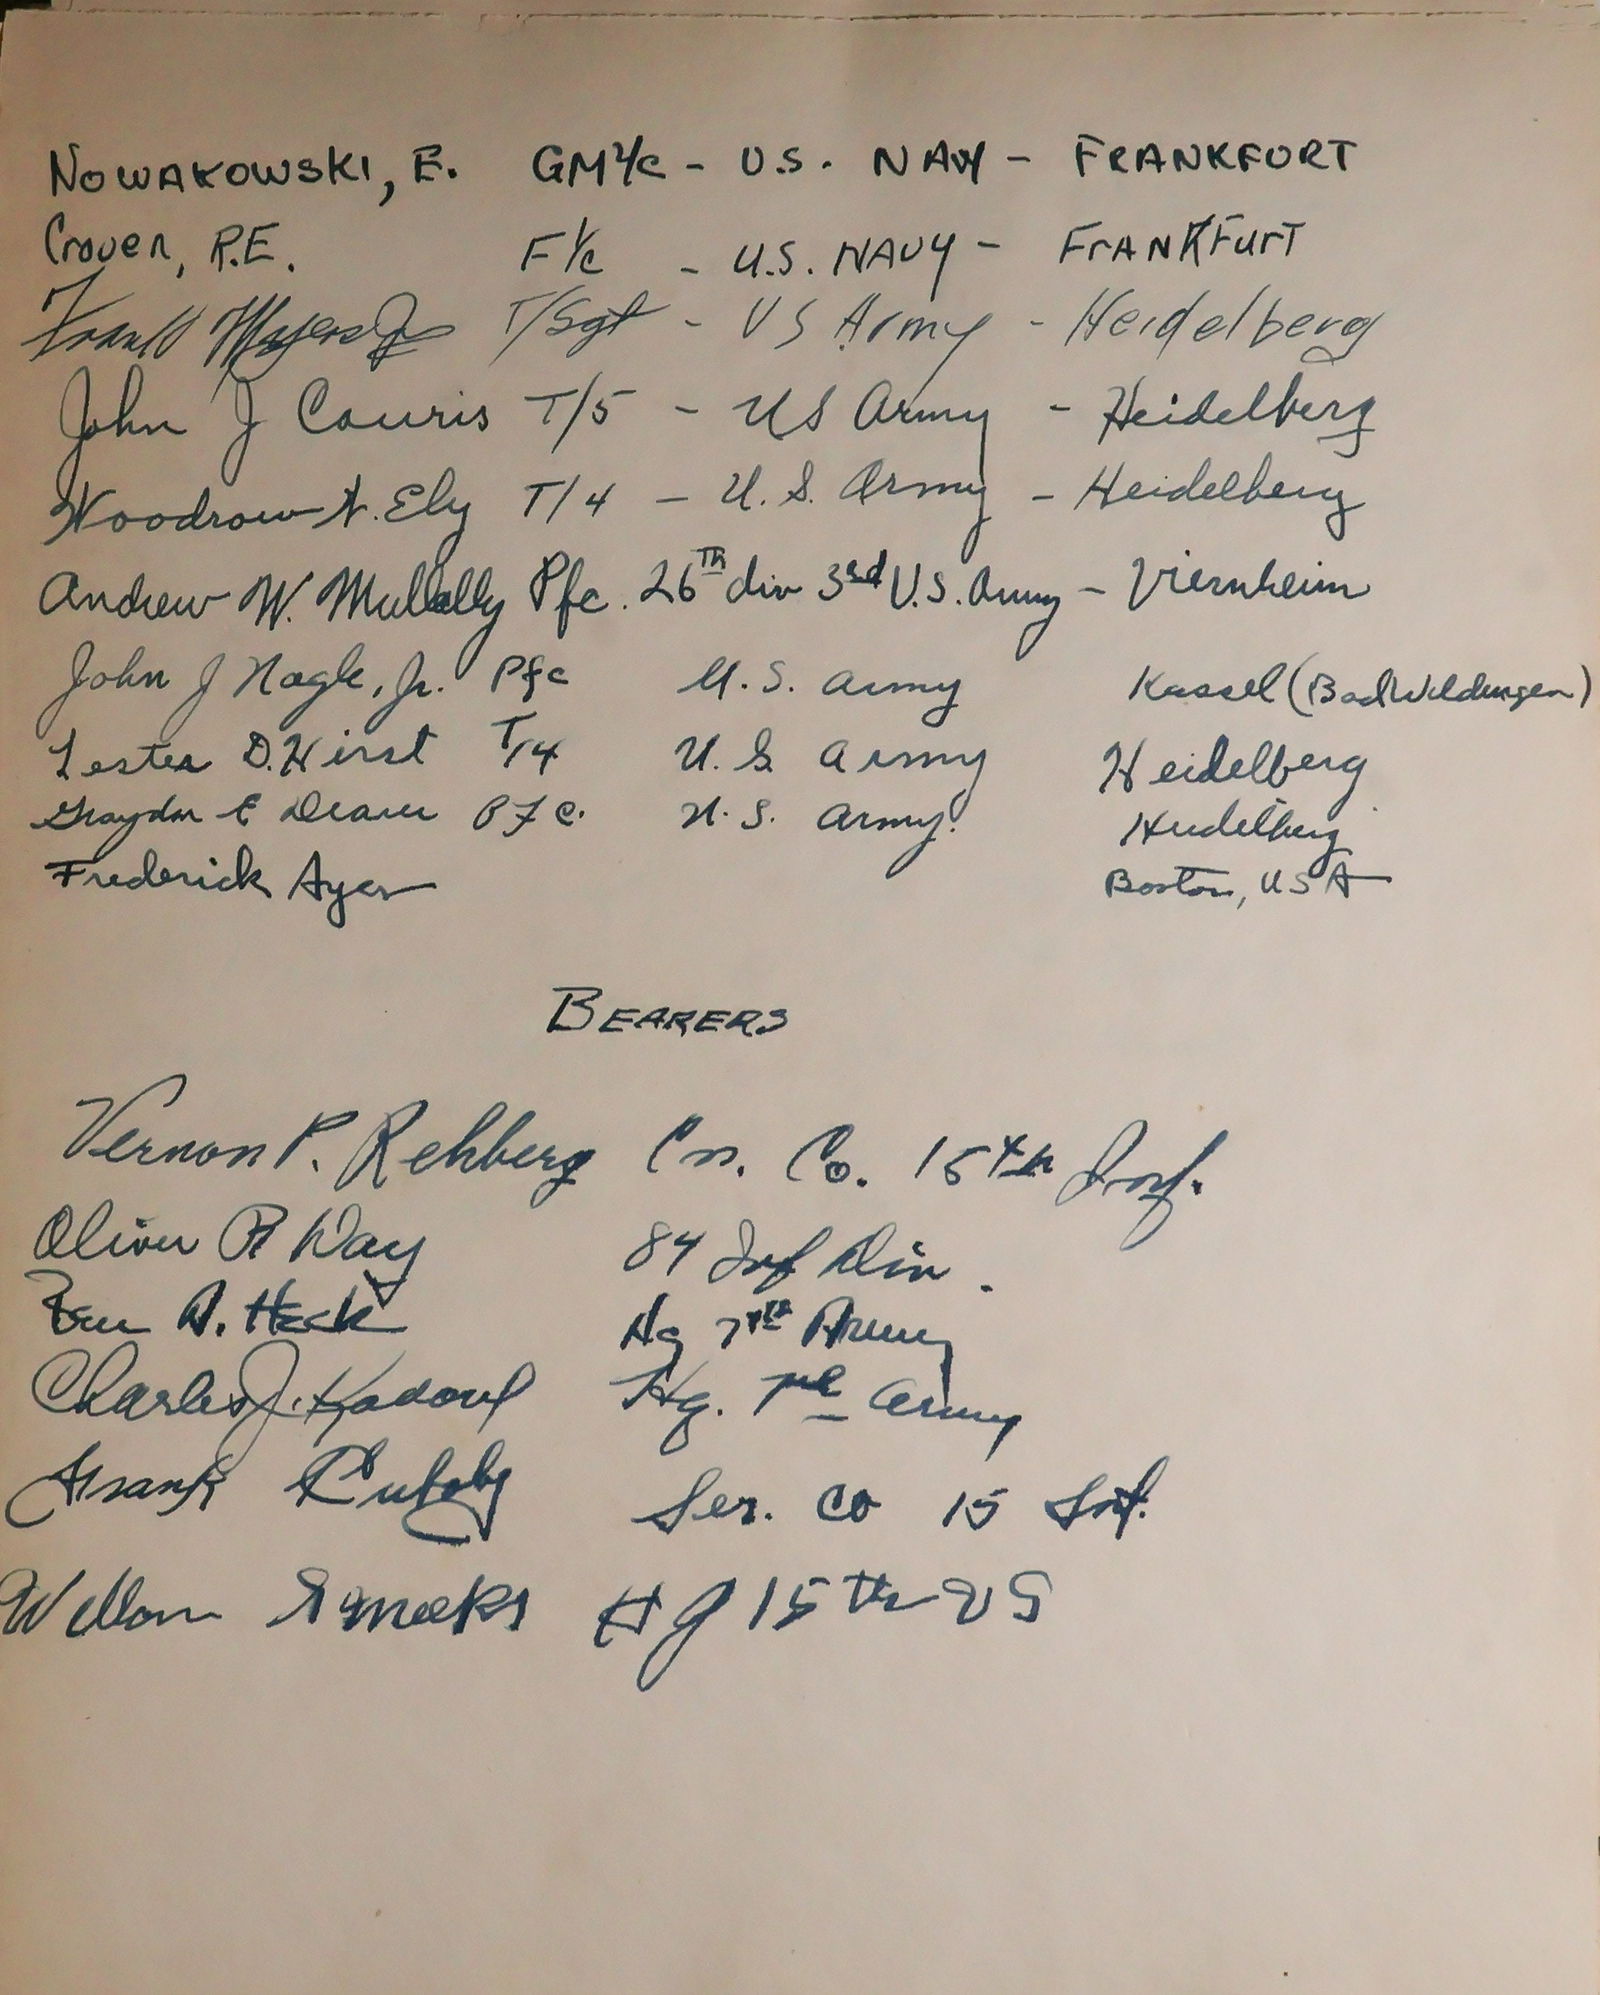 NOWAKOWSKI, E. GM 2/c - U.S. NAVY - FRANKFURT
Craven, R.E. F 1/c - U.S. NAVY - FrANKFurT
Frank Mayers Jr T/Sgt - US Army - Heidelberg
John J Couris T/5 - US Army - Heidelberg
Woodrow N. Ely T/4 - U.S. Army - Heidelberg
Andrew W. Mullally Pfc. 26th div 3rd U.S. Army - Viernheim
John J Nagle, Jr. Pfc U.S. Army Kassel (Bad Wildungen)
Lester D. Hirst T/4 U.S. Army Heidelberg
Graydon E Deaver PFC. U.S. Army. Heidelberg
Frederick Ayer Boston, USA
BEARERS
Vernon P. Rehberg Cn. Co. 15th Inf.
Oliver R Way 84 Inf Div.
A. Heck Hq 7th Army
Charles J. Hq. 7th Army
Frank Ser. Co 15 Inf.
Smeeks HQ 15th US